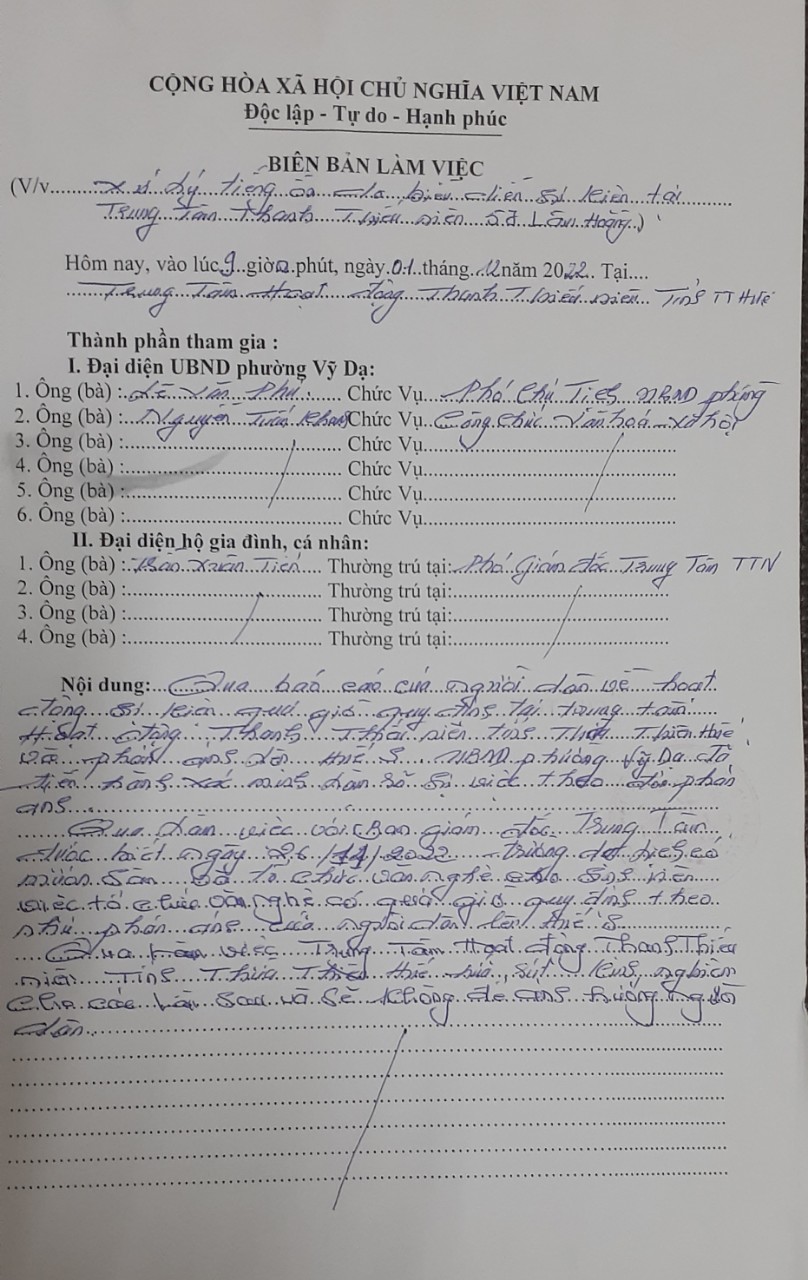 CỘNG HÒA XÃ HỘI CHỦ NGHĨA VIỆT NAM
Độc lập - Tự do - Hạnh phúc
BIÊN BẢN LÀM VIỆC
(V/v xử lý tiếng ồn do biểu diễn sự kiện tại
Trung Tâm Thanh Thiếu niên Lâm Hoằng)
Hôm nay, vào lúc 9 giờ 00 phút, ngày 01 tháng 12 năm 2022. Tại....
Trung Tâm Hoạt động Thanh Thiếu niên Tỉnh TT Huế
Thành phần tham gia :
I. Đại diện UBND phường Vỹ Dạ:
1. Ông (bà) : Văn Phú Chức Vụ Phó Chủ Tịch UBND phường
2. Ông (bà) : Nguyễn Chức Vụ Công chức Văn hoá xã hội
3. Ông (bà) : Chức Vụ
4. Ông (bà) : Chức Vụ
5. Ông (bà) : Chức Vụ
6. Ông (bà) : Chức Vụ
II. Đại diện hộ gia đình, cá nhân:
1. Ông (bà) : Xuân Tiến Thường trú tại: Phó Giám đốc Trung Tâm TTN
2. Ông (bà) : Thường trú tại:
3. Ông (bà) : Thường trú tại:
4. Ông (bà) : Thường trú tại:
Nội dung: Qua báo cáo của người dân về hoạt
động sự kiện quá giờ quy định tại trung tâm
Hoạt động Thanh Thiếu niên tỉnh Thừa Thiên Huế
và phản ánh lên Huế S. UBND phường Vỹ Dạ đã
tiến hành xác minh sự việc theo đơn phản
ánh
Qua làm việc với Ban giám đốc Trung Tâm
được biết ngày 26/11/2022 trường có
mượn sân để tổ chức văn nghệ cho sinh viên
việc tổ chức văn nghệ có quá giờ quy định theo
như phản ánh của người dân lên Huế S
Qua làm việc Trung Tâm Hoạt động Thanh Thiếu
niên Tỉnh Thừa Thiên Huế rút kinh nghiệm
cho các lần sau và sẽ không để ảnh hưởng người
dân